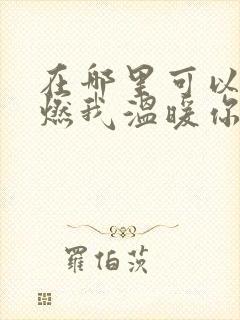 在那里可以
燃我温暖你
羅伯茨